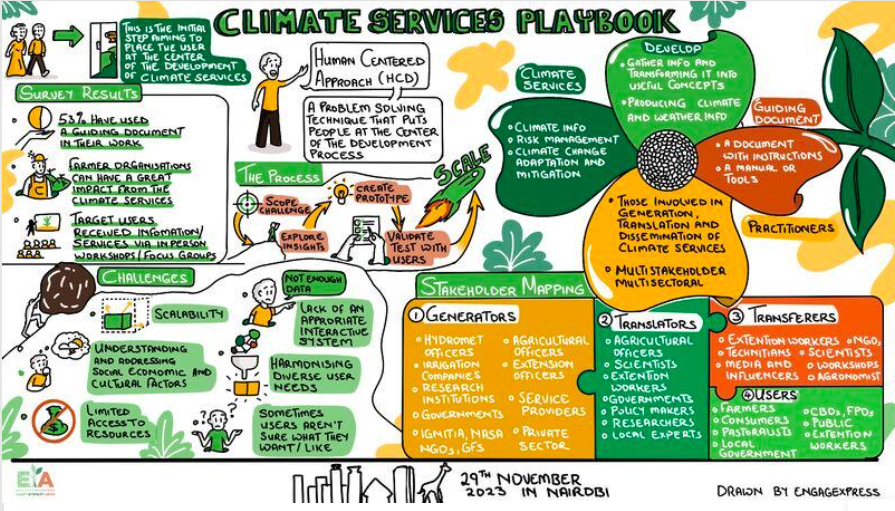 CLIMATE SERVICES PLAYBOOK
THIS IS THE INITIAL
STEP AIMING TO
PLACE THE USER
AT THE CENTER
OF THE DEVELOPMENT
OF CLIMATE SERVICES
SURVEY RESULTS
53% HAVE USED
A GUIDING DOCUMENT
IN THEIR WORK
FARMER ORGANISATIONS
CAN HAVE A GREAT
IMPACT FROM THE
CLIMATE SERVICES
TARGET USERS
RECEIVED INFOMATION/
SERVICES VIA IN PERSON
WORKSHOPS/FOCUS GROUPS
HUMAN CENTERED
APPROACH (HCD)
A PROBLEM SOLVING
TECHNIQUE THAT PUTS
PEOPLE AT THE CENTER
OF THE DEVELOPMENT
PROCESS
THE PROCESS
SCOPE
CHALLENGE
EXPLORE
INSIGHTS
CREATE
PROTOTYPE
VALIDATE
TEST WITH
USERS
SCALE
CLIMATE
SERVICES
• CLIMATE INFO
• RISK MANAGEMENT
• CLIMATE CHANGE
ADAPTATION AND
MITIGATION
DEVELOP
• GATHER INFO AND
TRANSFORMING IT INTO
USEFUL CONCEPTS
• PRODUCING CLIMATE
AND WEATHER INFO
GUIDING
DOCUMENT
• A DOCUMENT
WITH INSTRUCTIONS
• A MANUAL OR
TOOLS
PRACTITIONERS
• THOSE INVOLVED IN
GENERATION,
TRANSLATION AND
DISSEMINATION OF
CLIMATE SERVICES
• MULTISTAKEHOLDER
MULTISECTORAL
CHALLENGES
SCALABILITY
UNDERSTANDING
AND ADDRESSING
SOCIAL ECONOMIC AND
CULTURAL FACTORS
LIMITED
ACCESS TO
RESOURCES
NOT ENOUGH
DATA
LACK OF AN
APPROPRIATE
INTERACTIVE
SYSTEM
HARMONISING
DIVERSE USER
NEEDS
SOMETIMES
USERS AREN'T
SURE WHAT THEY
WANT/LIKE
STAKEHOLDER MAPPING
1 GENERATORS
• HYDROMET
OFFICERS
• IRRIGATION
COMPANIES
• RESEARCH
INSTITUTIONS
• GOVERNMENTS
• IGNITIA, NASA
NGOs, GFS
• AGRICULTURAL
OFFICERS
• EXTENSION
OFFICERS
• SERVICE
PROVIDERS
• PRIVATE
SECTOR
2 TRANSLATORS
• AGRICULTURAL
OFFICERS
• SCIENTISTS
• EXTENTION
WORKERS
• GOVERNMENTS
• POLICY MAKERS
• RESEARCHERS
• LOCAL EXPERTS
3 TRANSFERERS
• EXTENTION WORKERS • NGOs
• TECHNITIANS • SCIENTISTS
• MEDIA AND • WORKSHOPS
INFLUENCERS • AGRONOMIST
4 USERS
• FARMERS
• CONSUMERS
• PASTORALISTS
• LOCAL
GOVERNMENT
• CBOs, FPOs
• PUBLIC
• EXTENTION
WORKERS
29TH NOVEMBER
2023 IN NAIROBI
DRAWN BY ENGAGEXPRESS